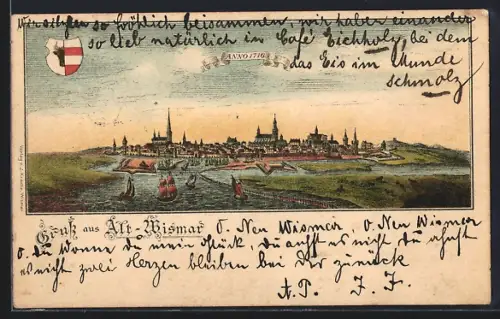 Wir sitzen so fröhlich beisammen, wir haben einander
so lieb natürlich in Café Eichholz, bei dem
das Eis im Munde
schmolz
ANNO 1716
Gruß aus Alt-Wismar O. Neu Wismar, O. Neu Wismar
O. du Wonne du mein Glück, du ahnst es nicht du ahnst
es nicht zwei Herzen bleiben bei Dir zurück
A.P. J.J.